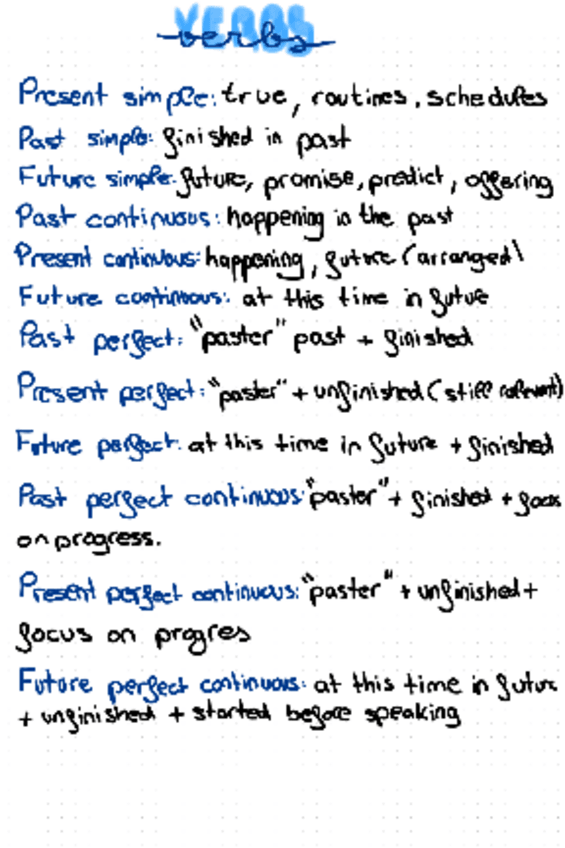 VERBS
verbs
Present simple: true, routines, schedules
Past simple: finished in past
Future simple: future, promise, predict, offering
Past continuous: happening in the past
Present continuous: happening, future (arranged)
Future continuous: at this time in future
Past perfect: "paster" past + finished
Present perfect: "paster" + unfinished (still relevant)
Future perfect: at this time in future + finished
Past perfect continuous: "paster" + finished + focus
on progress.
Present perfect continuous: "paster" + unfinished +
focus on progres
Future perfect continuous: at this time in future
+ unfinished + started before speaking